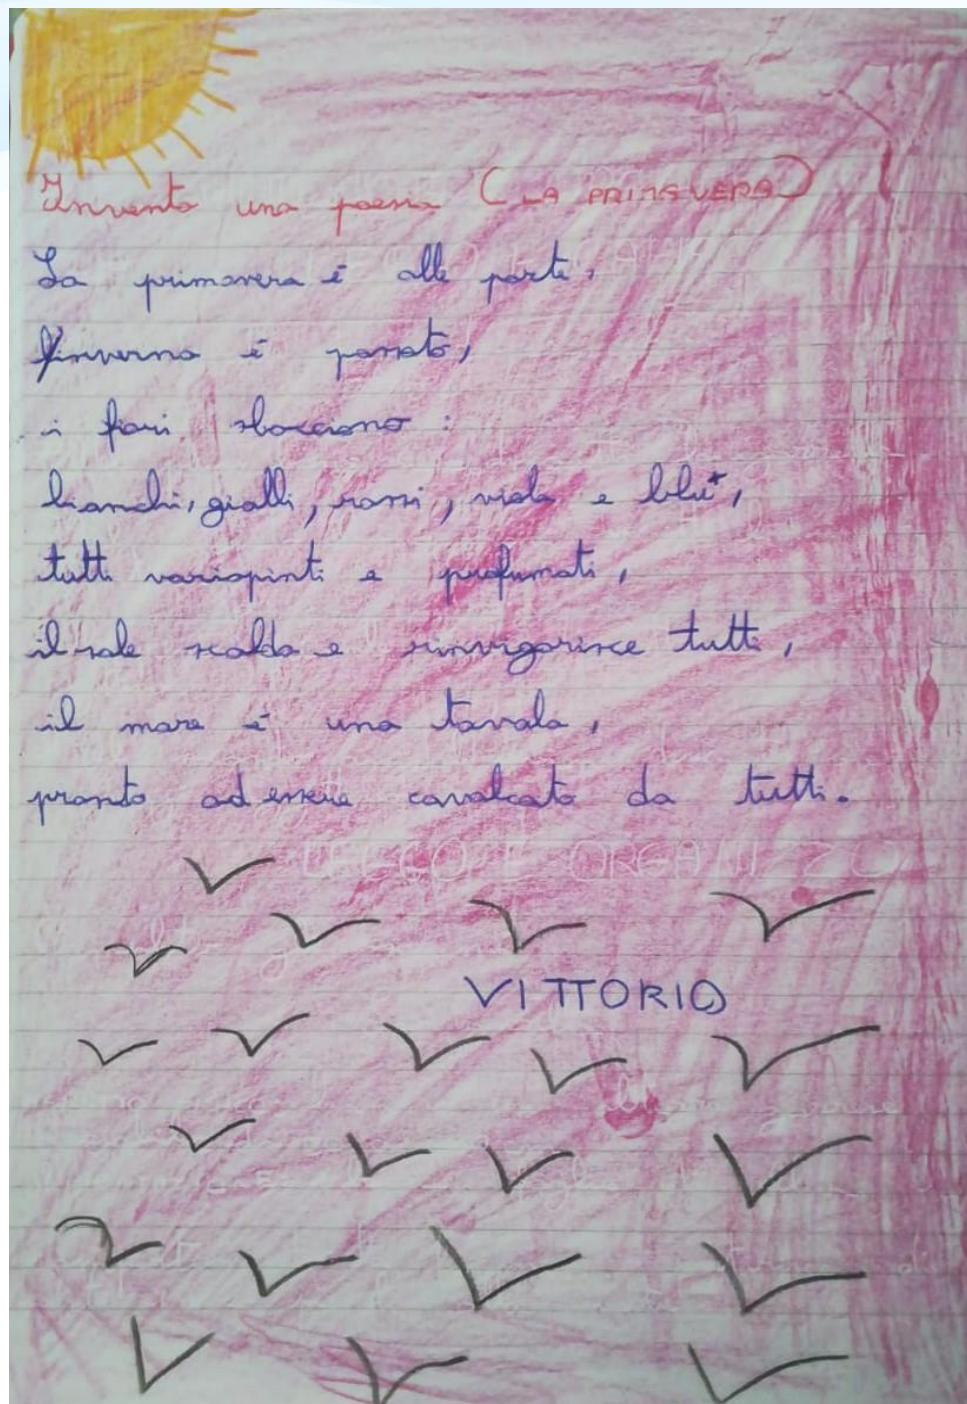 Invento una poesia (LA PRIMAVERA)
La primavera è alle porte,
l'inverno è passato,
i fiori sbocciano:
bianchi, gialli, rossi, viola e blu,
tutti variopinti e profumati,
il sole scalda e rinvigorisce tutti,
il mare è una tavola,
pronto ad essere cavalcato da tutti.
LEGGO E ORGANIZZO
VITTORIO